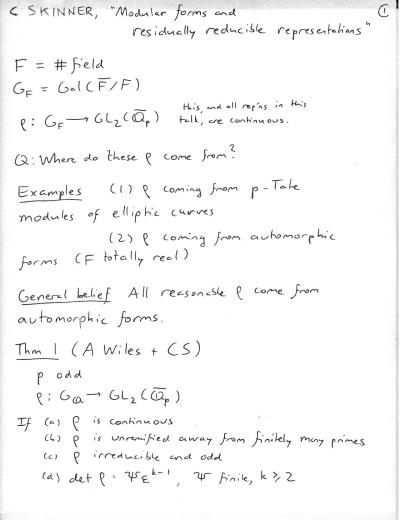 C SKINNER, "Modular forms and ①
residually reducible representations"
F = # field
G_F = Gal(F̄/F)
ρ: G_F → GL₂(Q̄_p) this, and all rep'ns in this
talk, are continuous.
Q: Where do these ρ come from?
Examples (1) ρ coming from p-Tate
modules of elliptic curves
(2) ρ coming from automorphic
forms (F totally real)
General belief All reasonable ρ come from
automorphic forms.
Thm 1 (A Wiles + CS)
p odd
ρ: G_Q → GL₂(Q̄_p)
If (a) ρ is continuous
(b) ρ is unramified away from finitely many primes
(c) ρ irreducible and odd
(d) det ρ = ψε^{k-1}, ψ finite, k ≥ 2